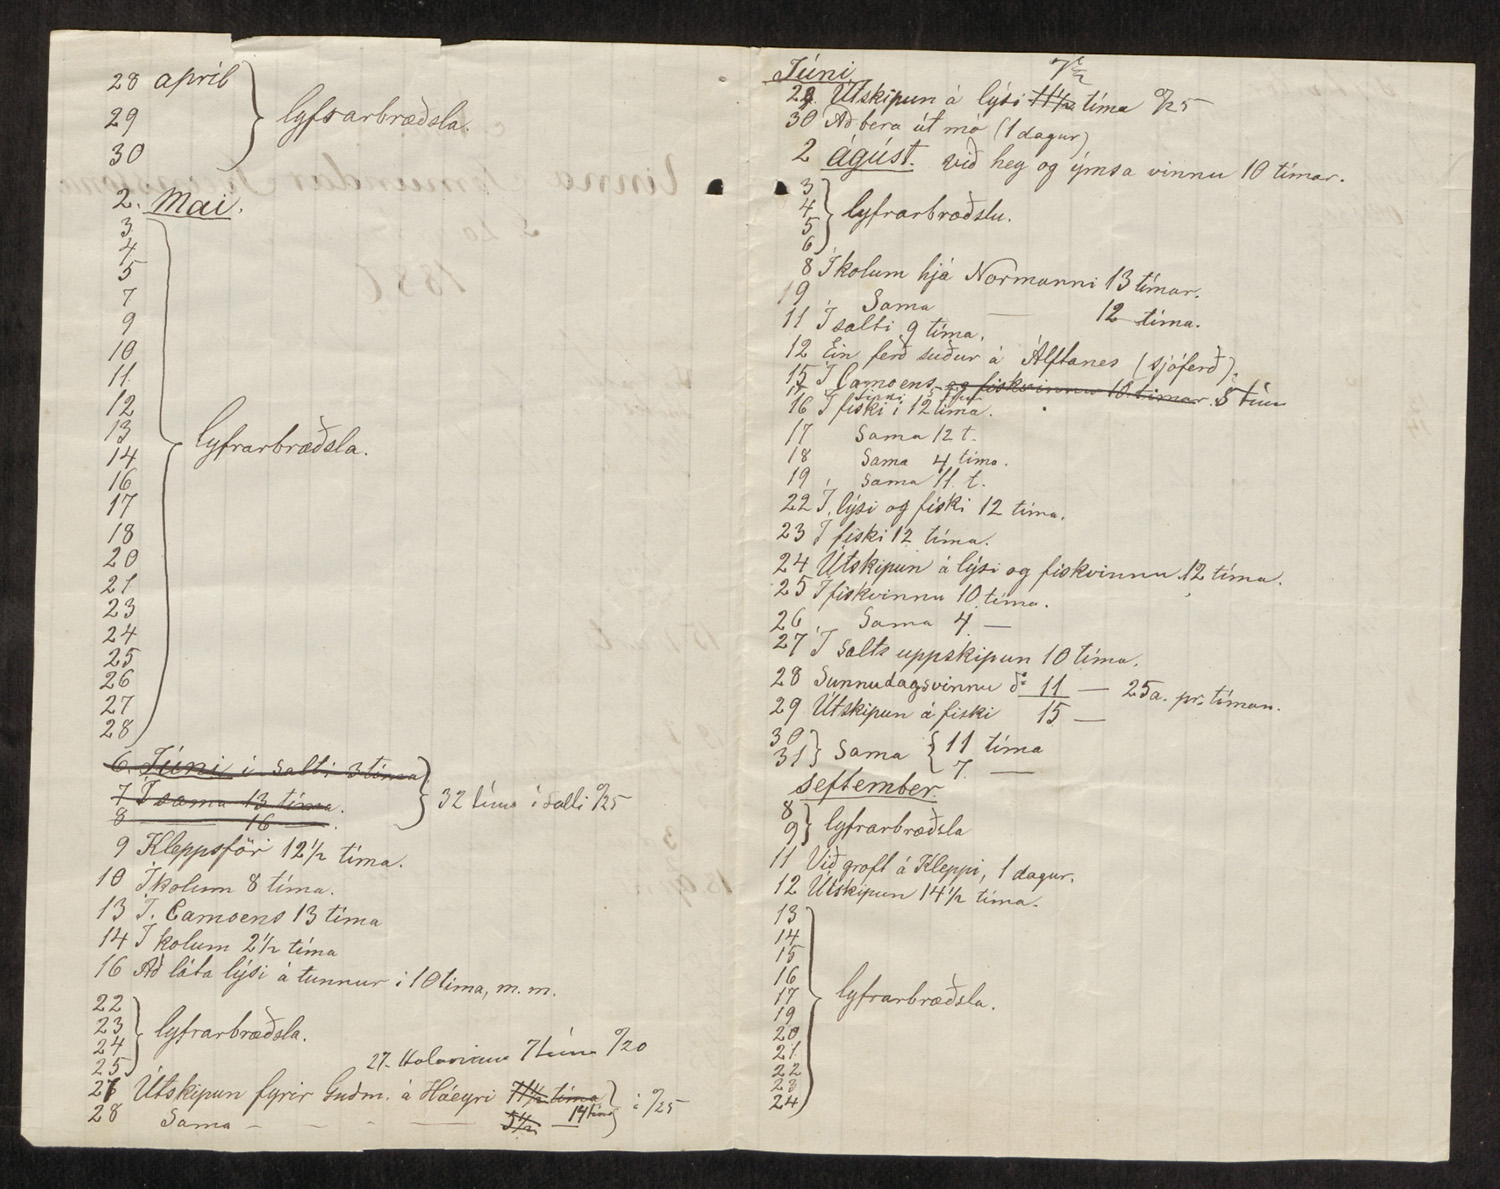 28 apríl
29
30
lyfrarbræðsla.
2. Mai.
3
4
5
7
9
10
11
12
13
14
16
17
18
20
21
23
24
25
26
27
28
lyfrarbræðsla.
6. Júni í salti 3 tíma
7 Í sama 13 tíma.
8 — 16 —.
32 tíma í salti 0/25
9 Kleppsför 12 1/2 tíma.
10 Í kolum 8 tíma.
13 Í Camoens 13 tíma
14 Í kolum 2 1/2 tíma
16 Að láta lýsi á tunnur í 10 tíma, m. m.
22
23
24
25
lyfrarbræðsla.
27. 7 tíma 0/20
27 Útskipun fyrir Guðm. á Háeyri 11 1/2 tíma
28 Sama — — — 5 1/2 — 14 tíma
í 0/25
Júni
7 1/2
29. Útskipun á lýsi 11 1/2 tíma 0/25
30 Að bera út mó (1 dagur)
2 ágúst. við hey og ýmsa vinnu 10 tímar.
3
4
5
6
lyfrarbræðslu.
8 Í kolum hjá Normanni 13 tímar.
9 Sama — 12 tíma.
11 Í salti 9 tíma.
12 Ein ferð suður á Álftanes (sjóferð).
15 Í Camoens og fiskvinnu 10 tímar. 5 tím
16 Í fiski í 12 tíma.
17 Sama 12 t.
18 Sama 4 tíma.
19 Sama 11. t.
22 Í lýsi og fiski 12 tíma.
23 Í fiski 12 tíma.
24 Útskipun á lýsi og fiskvinnu 12 tíma.
25 Í fiskvinnu 10 tíma.
26 Sama 4 —
27 Í salts uppskipun 10 tíma.
28 Sunnudagsvinnu do 11 — 25 a. pr. tíman.
29 Útskipun á fiski 15 —
30
31
Sama
11 tíma
7. —
september.
8
9
lyfrarbræðsla
11 Við groft á Kleppi, 1 dagur.
12 Útskipun 14 1/2 tíma.
13
14
15
16
17
19
20
21
22
23
24
lyfrarbræðsla.